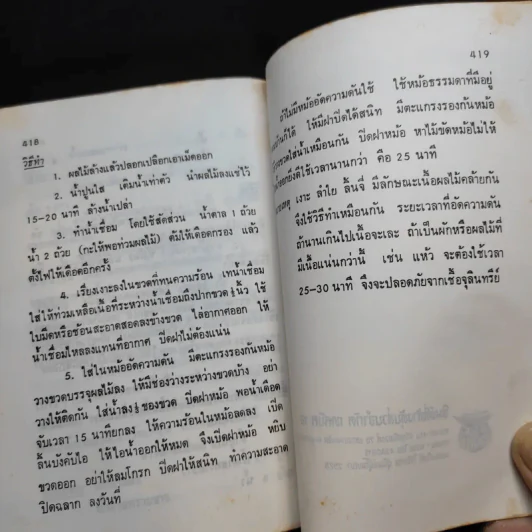 418
วิธีทำ
1. ผลไม้ล้างแล้วปลอกเปลือกเอาเม็ดออก
2. น้ำปูนใส เติมน้ำเท่าตัว นำผลไม้ลงแช่ไว้
15–20 นาที ล้างน้ำเปล่า
3. ทำน้ำเชื่อม โดยใช้สัดส่วน น้ำตาล 1 ถ้วย
น้ำ 2 ถ้วย (กะให้พอท่วมผลไม้) ต้มให้เดือดกรอง แล้ว
ตั้งไฟให้เดือดอีกครั้ง
4. เรียงเงาะลงในขวดที่ทนความร้อน เทน้ำเชื่อม
ใส่ให้ท่วมเหลือเนื้อที่ระหว่างน้ำเชื่อมถึงปากขวด ½ นิ้ว ใช้
ใบมีดหรือช้อนสะอาดสอดลงข้างขวด ไล่อากาศออก ให้
น้ำเชื่อมไหลลงแทนที่อากาศ ปิดฝาไม่ต้องแน่น
5. ใส่ในหม้ออัดความดัน มีตะแกรงรองก้นหม้อ
วางขวดบรรจุผลไม้ลง ให้มีช่องว่างระหว่างขวดบ้าง อย่า
วางให้ติดกัน ใส่น้ำลง ของขวด ปิดฝาหม้อ พอน้ำเดือด
จับเวลา 15 นาทียกลง ให้ความร้อนในหม้อลดลง เปิด
ลิ้นบังคับไอ ให้ไอน้ำออกให้หมด จึงเปิดฝาหม้อ หยิบ
ขวดออก อย่าให้ลมโกรก ปิดฝาให้สนิท ทำความสะอาด
ปิดฉลาก ลงวันที่
419
ถ้าไม่มีหม้ออัดความดันใช้ ใช้หม้อธรรมดาที่มีอยู่
ก็ได้ ให้มีฝาปิดได้สนิท มีตะแกรงรองก้นหม้อ
ขวดใส่น้ำเหมือนกัน ปิดฝาหม้อ หาไม้ขัดหม้อไม่ให้
ใช้เวลานานกว่า คือ 25 นาที
เงาะ ลำไย ลิ้นจี่ มีลักษณะเนื้อผลไม้คล้ายกัน
จึงใช้วิธีทำเหมือนกัน ระยะเวลาที่อัดความดัน
ถ้านานเกินไปเนื้อจะเละ ถ้าเป็นผักหรือผลไม้ที่
มีเนื้อแน่นกว่านี้ เช่น แห้ว จะต้องใช้เวลา
25–30 นาที จึงจะปลอดภัยจากเชื้อจุลินทรีย์